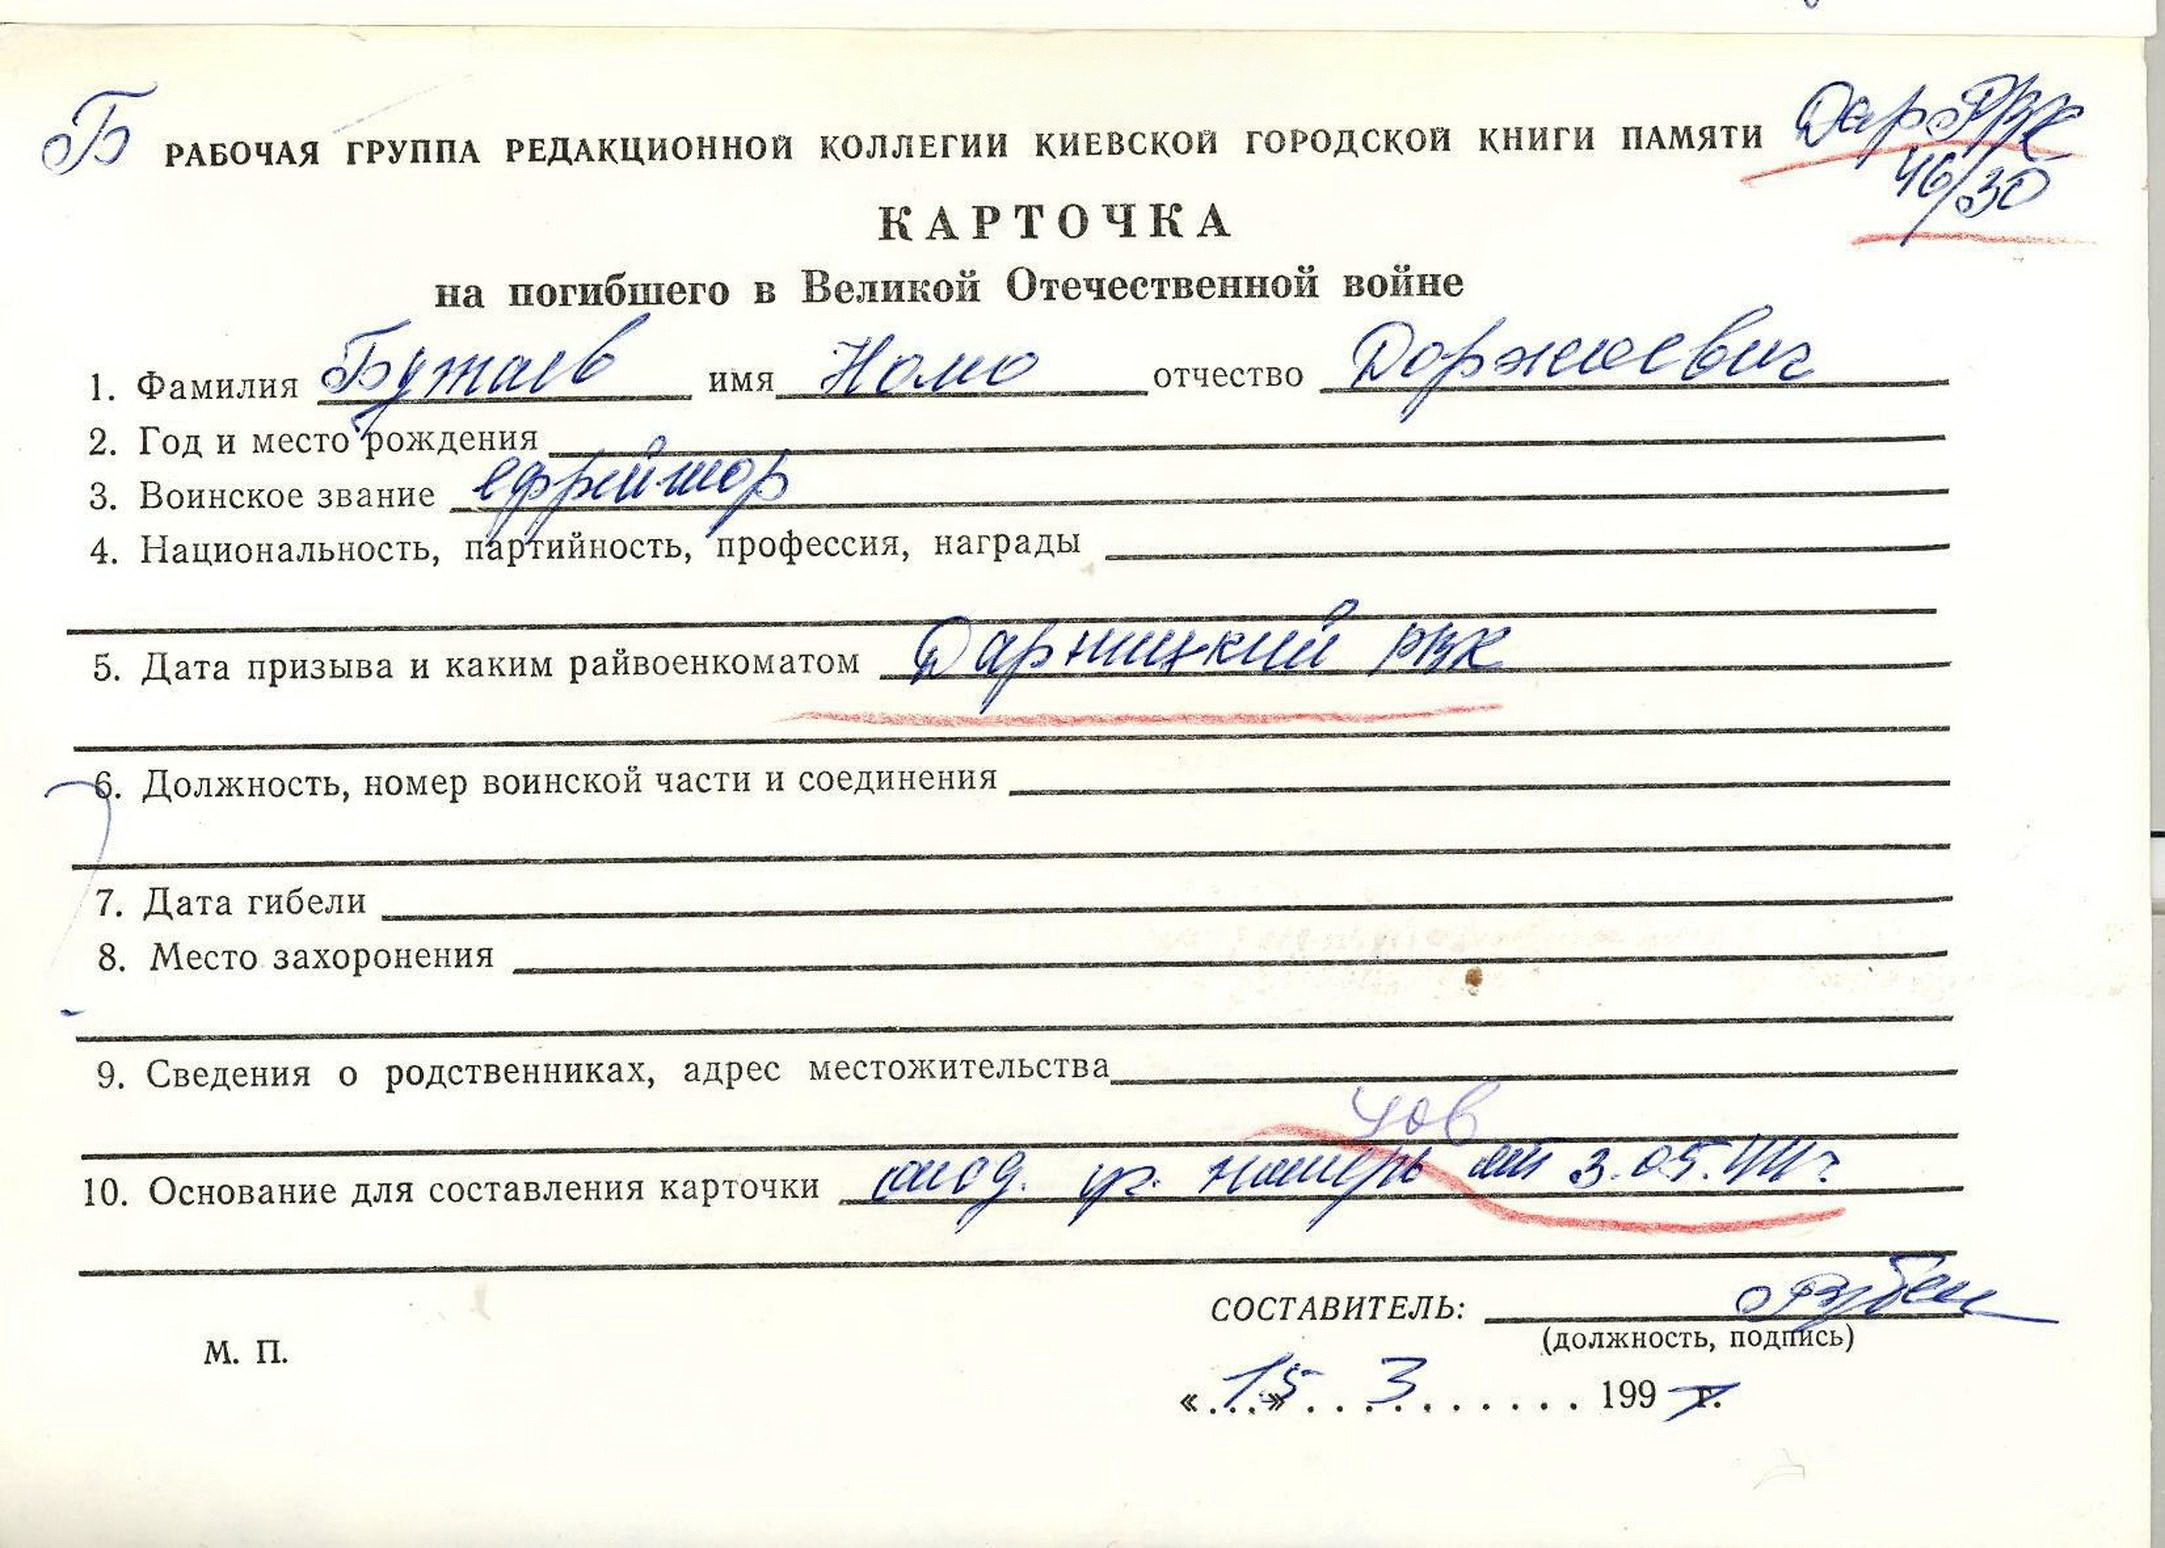 Б РАБОЧАЯ ГРУППА РЕДАКЦИОННОЙ КОЛЛЕГИИ КИЕВСКОЙ ГОРОДСКОЙ КНИГИ ПАМЯТИ Дар РВК
46/30
КАРТОЧКА
на погибшего в Великой Отечественной войне
1. Фамилия Бужаев имя Номо отчество Доржиевич
2. Год и место рождения
3. Воинское звание ефрейтор
4. Национальность, партийность, профессия, награды
5. Дата призыва и каким райвоенкоматом Дарницкий РВК
6. Должность, номер воинской части и соединения
7. Дата гибели
8. Место захоронения
9. Сведения о родственниках, адрес местожительства
10. Основание для составления карточки потерь от 3.05.44 г
СОСТАВИТЕЛЬ:
(должность, подпись)
М. П.
«15» 3 1997 г.